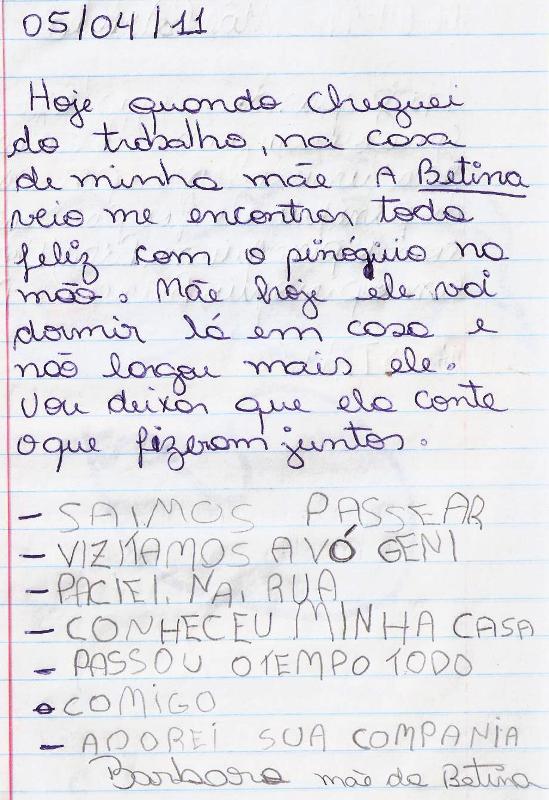 05/04/11
Hoje quando cheguei
do trabalho, na casa
de minha mãe A Betina
veio me encontrar toda
feliz com o pinóquio na
mão. Mãe hoje ele vai
dormir lá em casa e
não largou mais ele.
Vou deixar que ela conte
o que fizeram juntos.
- SAIMOS PASSEAR
- VIZITAMOS A VÓ GENI
- PACIEI. NA, RUA
- CONHECEU MINHA CASA
- PASSOU O TEMPO TODO
- COMIGO
- ADOREI SUA COMPANIA
Barbara mãe da Betina